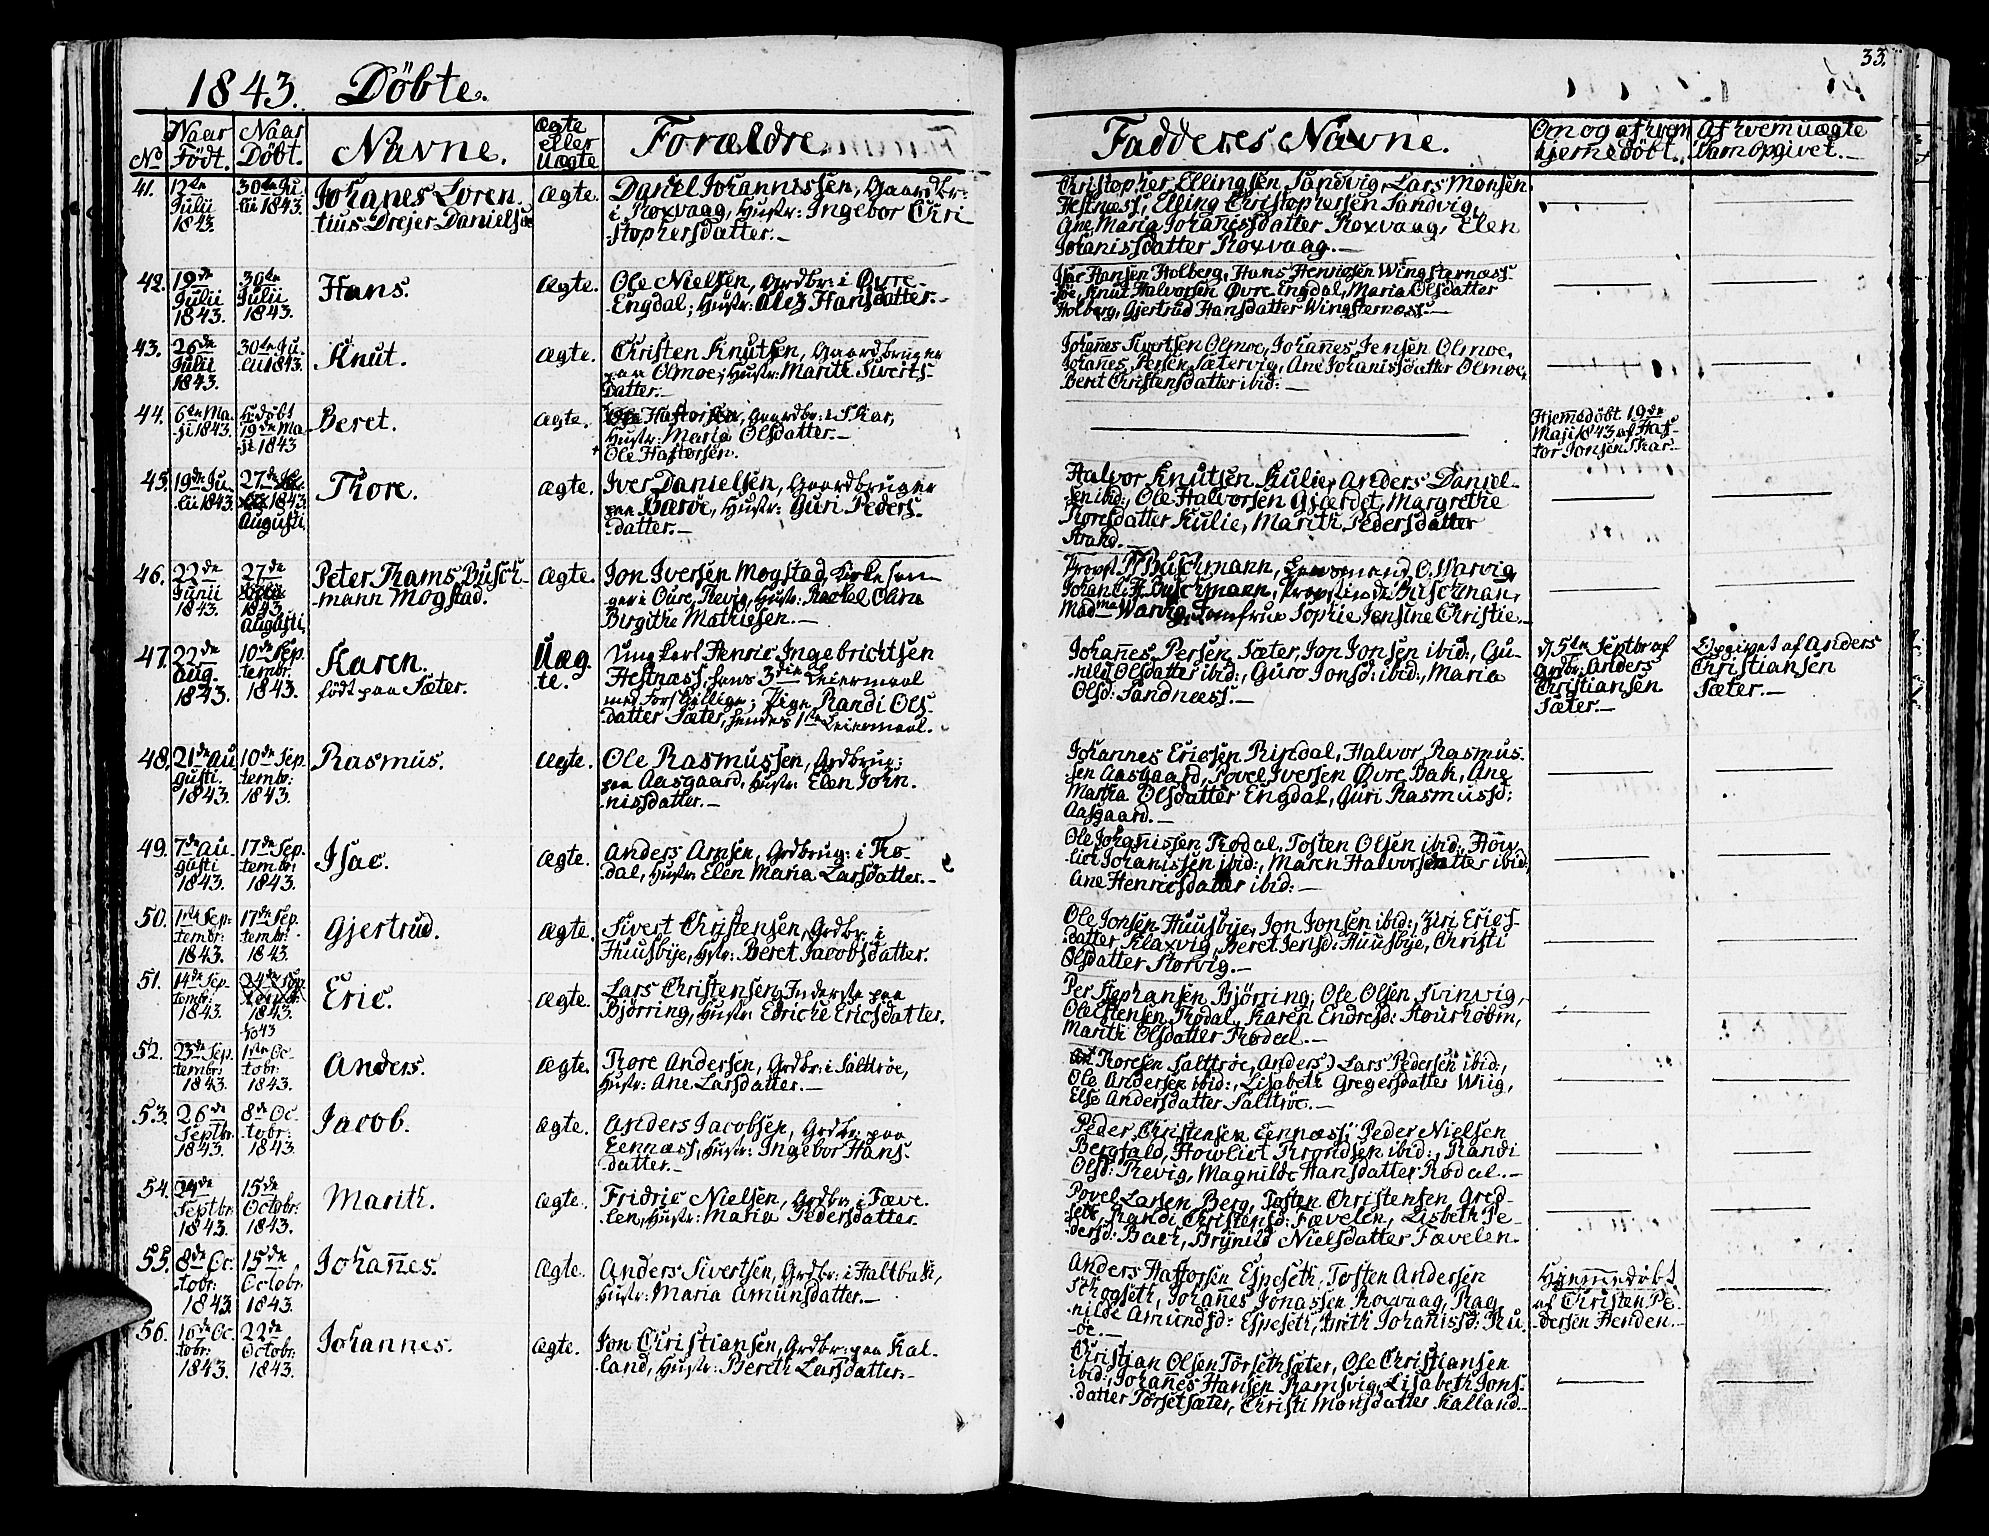 1843. Döbte.
No
Naar Födt.
Naar Döbt.
Navne.
Ægte eller Uægte
Forældre.
41.
12te Julii 1843.
30te Julii 1843.
Johanes Loren-
tius Drejer Danielsen
Ægte.
Daniel Johannissen, Gaardbr:
i Roxvaag, Hustr: Ingebor Chri
stophersdatter.
42.
19de Julii 1843.
30te Julii 1843.
Hans.
Ægte.
Ole Nielsen, Grdbr: i Øvre-
Engdal; Hustr: Alez Hansdatter.
43.
26de Julii 1843.
30te Julii 1843.
Knut.
Ægte.
Christen Knutsen, Gaardbruger
paa Olmoe; Hustr: Marith Siverts-
datter.
44.
6te Maji 1843.
19de Maji 1843
Beret.
Ægte.
Gaardbr: i Skar,
Hustr: Maria Olsdatter.
Ole Haftorsen.
45.
19de Julii 1843.
27de 1843. Augusti
Thore.
Ægte.
Iver Danielsen, Gaardbruger
paa Baröe, Hustr: Guri Peders-
datter.
46.
22de Junii 1843.
27de 1843 Augusti
Peter Thams Busch-
mann Mogstad.
Ægte.
Jon Iversen Mogstad, Kirkesan-
ger i Öure, Hustr: Rachel Olina
Birgithe Mathiesen.
47.
22de Aug. 1843.
10de Septembr. 1843.
Karen.
födt paa Sæter.
Uæg-
te.
Ungkarl Henric Ingebrichtsen
Hestnæss, hans 3die Leiermaal
med forskjellige; Pige Randi Ols-
datter Sæter, hendes 1ste Leiermaal.
48.
21de Augusti. 1843.
10de Septembr: 1843.
Rasmus.
Ægte.
Ole Rasmussen, Grdbrug:
paa Aasgaard, Hustr: Elen Joha-
nissdatter.
49.
7de Augusti 1843.
17de Septembr: 1843.
Isac.
Ægte.
Anders Arnsen, Grdbrug: i Rö-
dal, Hustr: Elen Maria Larsdatter.
50.
1ste Septembr: 1843.
17de Septembr: 1843.
Gjertrud.
Ægte.
Sivert Christensen, Grdbr: i
Huusbye, Hustr: Beret Jacobsdatter.
51.
14de Septembr: 1843.
24de Septembr: 1843.
Eric.
Ægte.
Lars Christensen, Inderste paa
Björring, Hustr: Edriche Ericsdatter.
52.
23de Septembr: 1843.
1ste Octobr: 1843.
Anders.
Ægte.
Thore Andersen, Grdbr: i Salttröe,
Hustr: Ane Larsdatter.
53.
26de Septbr. 1843.
8de Octobr: 1843.
Jacob.
Ægte.
Anders Jacobsen, Grdbr: paa
Eennæss, Hustr: Ingebor Hans-
datter.
54.
24de Septbr: 1843.
15de Octobr: 1843.
Marith.
Ægte.
Fridric Nielsen, Grdbr: i Fæve-
len, Hustr: Maria Pedersdatter.
55.
8de Octobr: 1843.
15de Octobr. 1843.
Johañes.
Ægte.
Anders Sivertsen, Grdbr: i Haltbak,
Hustr: Maria Amunsdatter.
56.
16de Octobr: 1843.
22de Octobr: 1843.
Johannes.
Ægte.
Jon Christiansen, Grdbr: paa Kal-
land, Hustr: Bereth Larsdatter.
33.
Fadderes Navne.
Om og af hvem hjemedöbt.
Af hvem uægte Barn Opgivet.
Christopher Ellingsen Sandvig, Lars Monsen
Hestnæss, Elling Christophersen Sandvig,
Ane Maria Johanissdatter Roxvaag, Elen
Johanissdatter Roxvaag.
Iver Hansen Holberg, Hans Henricsen Wingsternæss
Knut Halvorsen Øvre Engdal, Maria Olsdatter
Holberg, Gjertrud Hansdatter Wingsternæss.
Johañes Sivertsen Olmoe, Johañes Jensen Olmoe,
Johañes Persen Sætervig, Ane Johanissdatter Olmoe,
Beret Christensdatter ibid:
Hjemedöbt 19de
Maji 1843 af Haf-
tor Jonsen Skar.
Halvor Knutsen Kulie, Anders Daniel-
sen ibid:, Ole Halvorsen Gjærdet, Margrethe
Thoresdatter Kulie, Marith Pedersdatter
Strand.
Provst Buschmann, Lensmand O. Warvig
Johan Buschmann, Provstinde Buschman,
Madme Warvig, Jomfrue Sophie Jensine Christie.
Johañes Persen Sæter, Jon Jonsen ibid:, Gu-
nild Olsdatter ibid:, Guro Jonsd: ibid:, Maria
Olsd: Sandnæss.
d. 5te Septbr af
Grdbr. Anders
Christiansen
Sæter.
Opgivet af Anders
Christiansen
Sæter.
Johannes Ericsen Rindal, Halvor Rasmus-
sen Aasgaard, Povel Iversen Øvre Bak, Ane
Martha Olsdatter Engdal, Guri Rasmussd:
Aasgaard.
Ole Johanissen Rödal, Tosten Olsen ibid:, How-
lict Johanissen ibid:, Maren Halvorsdatter ibid:
Ane Henricsdatter ibid:
Ole Jonsen Huusbye, Jon Jonsen ibid:, Siri Erics-
datter Klaxvig, Beret Jensd: Huusbye, Christi
Olsdatter Storvig.
Per Stephansen Björring, Ole Olsen Svinvig,
Ole Stensen Rödal, Karen Endresd:
Marith Olsdatter Rödal.
Thoresen Salttröe, Anders) Lars Pedersen ibid:,
Ole Andersen ibid:, Lisabeth Gregersdatter Wiig,
Else Andersdatter Salttröe.
Peder Christensen Eennæss, Peder Nielsen
Bergfald, Howlict Trondsen ibid:, Randi
Olsd: Revig, Magnilde Hansdatter Rödal.
Povel Larsen Berg, Tosten Christensen Gred-
seth, Randi Christensd: Fævelen, Lisbeth Pe-
dersd: Bach, Brynild Nielsdatter Fævelen.
Anders Haftorsen Espeseth, Tosten Andersen
Skogseth, Johañes Jonassen Roxvaag, Rag-
nilde Amundsd: Espeseth, Johanissd: Ru-
öe.
Hjemmedöbt
af Christen Pe-
dersen Henden.
Christian Olsen Torsethsæter, Ole Christiansen
ibid:, Johañes Hansen Ramsvig, Lisabeth Jons-
datter Torsetsæter, Christi Monsdatter Kalland.